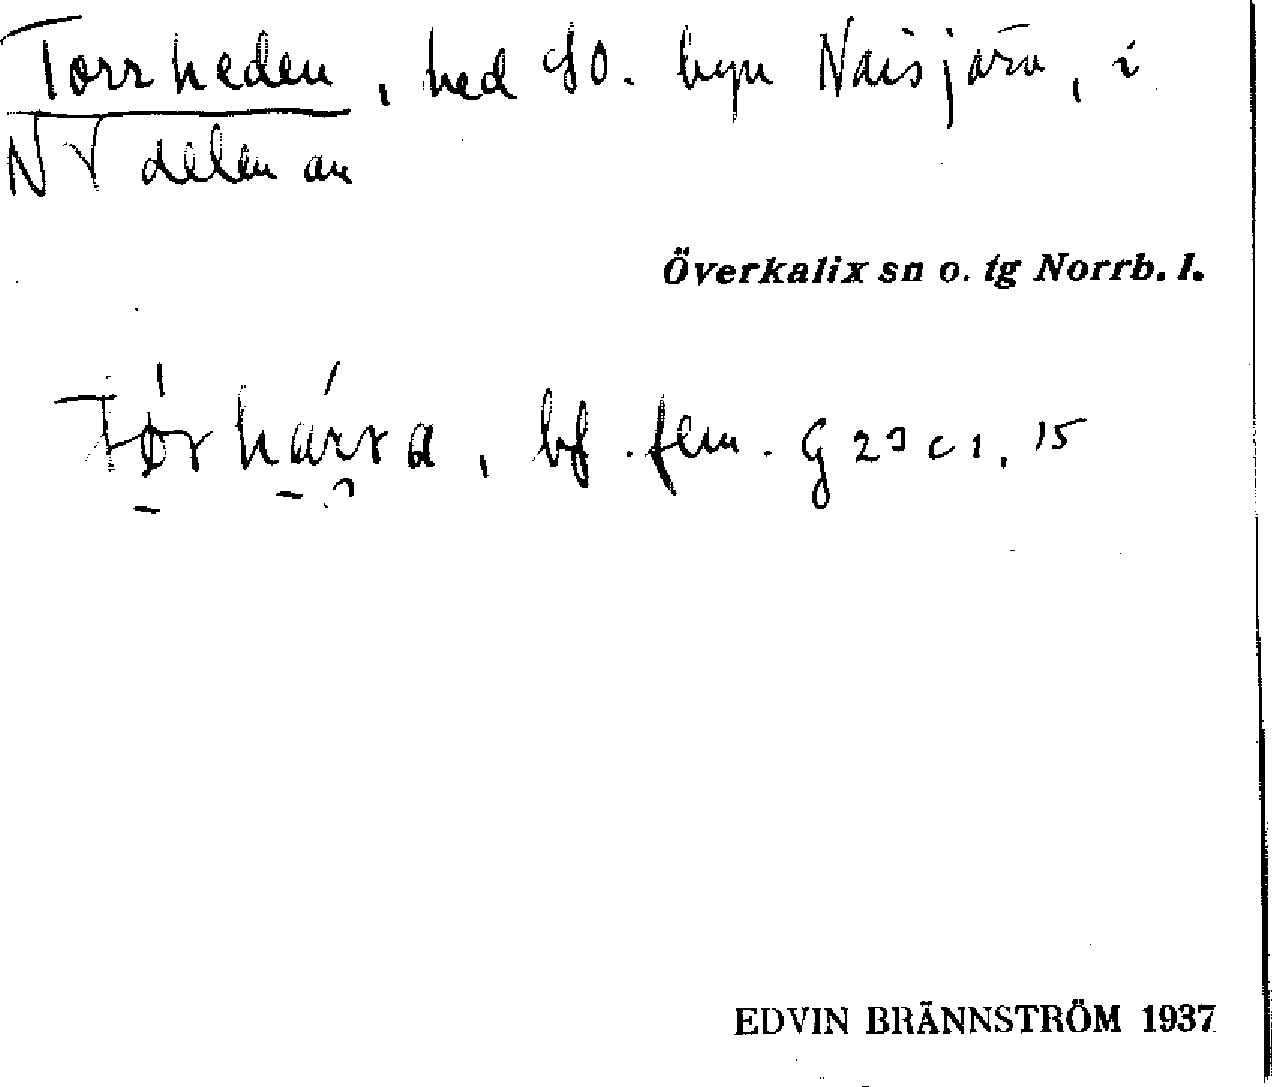 Torrheden, hed SO. byn Naisjärv, i
NV delen av
Överkalix sn o. tg Norrb. l.
bf. fem. G 23 c 1, 15
EDVIN BRÄNNSTRÖM 1937